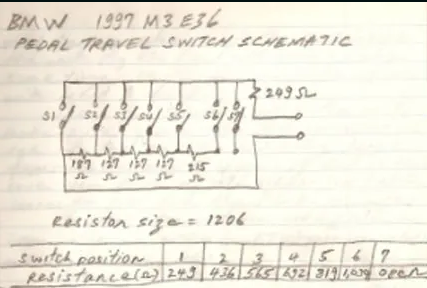 BMW 1997 M3 E36
PEDAL TRAVEL SWITCH SCHEMATIC
249 Ω
S1 S2 S3 S4 S5 S6 S7
187 127 127 127 215
Ω Ω Ω Ω Ω
Resistor size = 1206
switch position 1 2 3 4 5 6 7
Resistance (Ω) 249 436 565 692 819 open